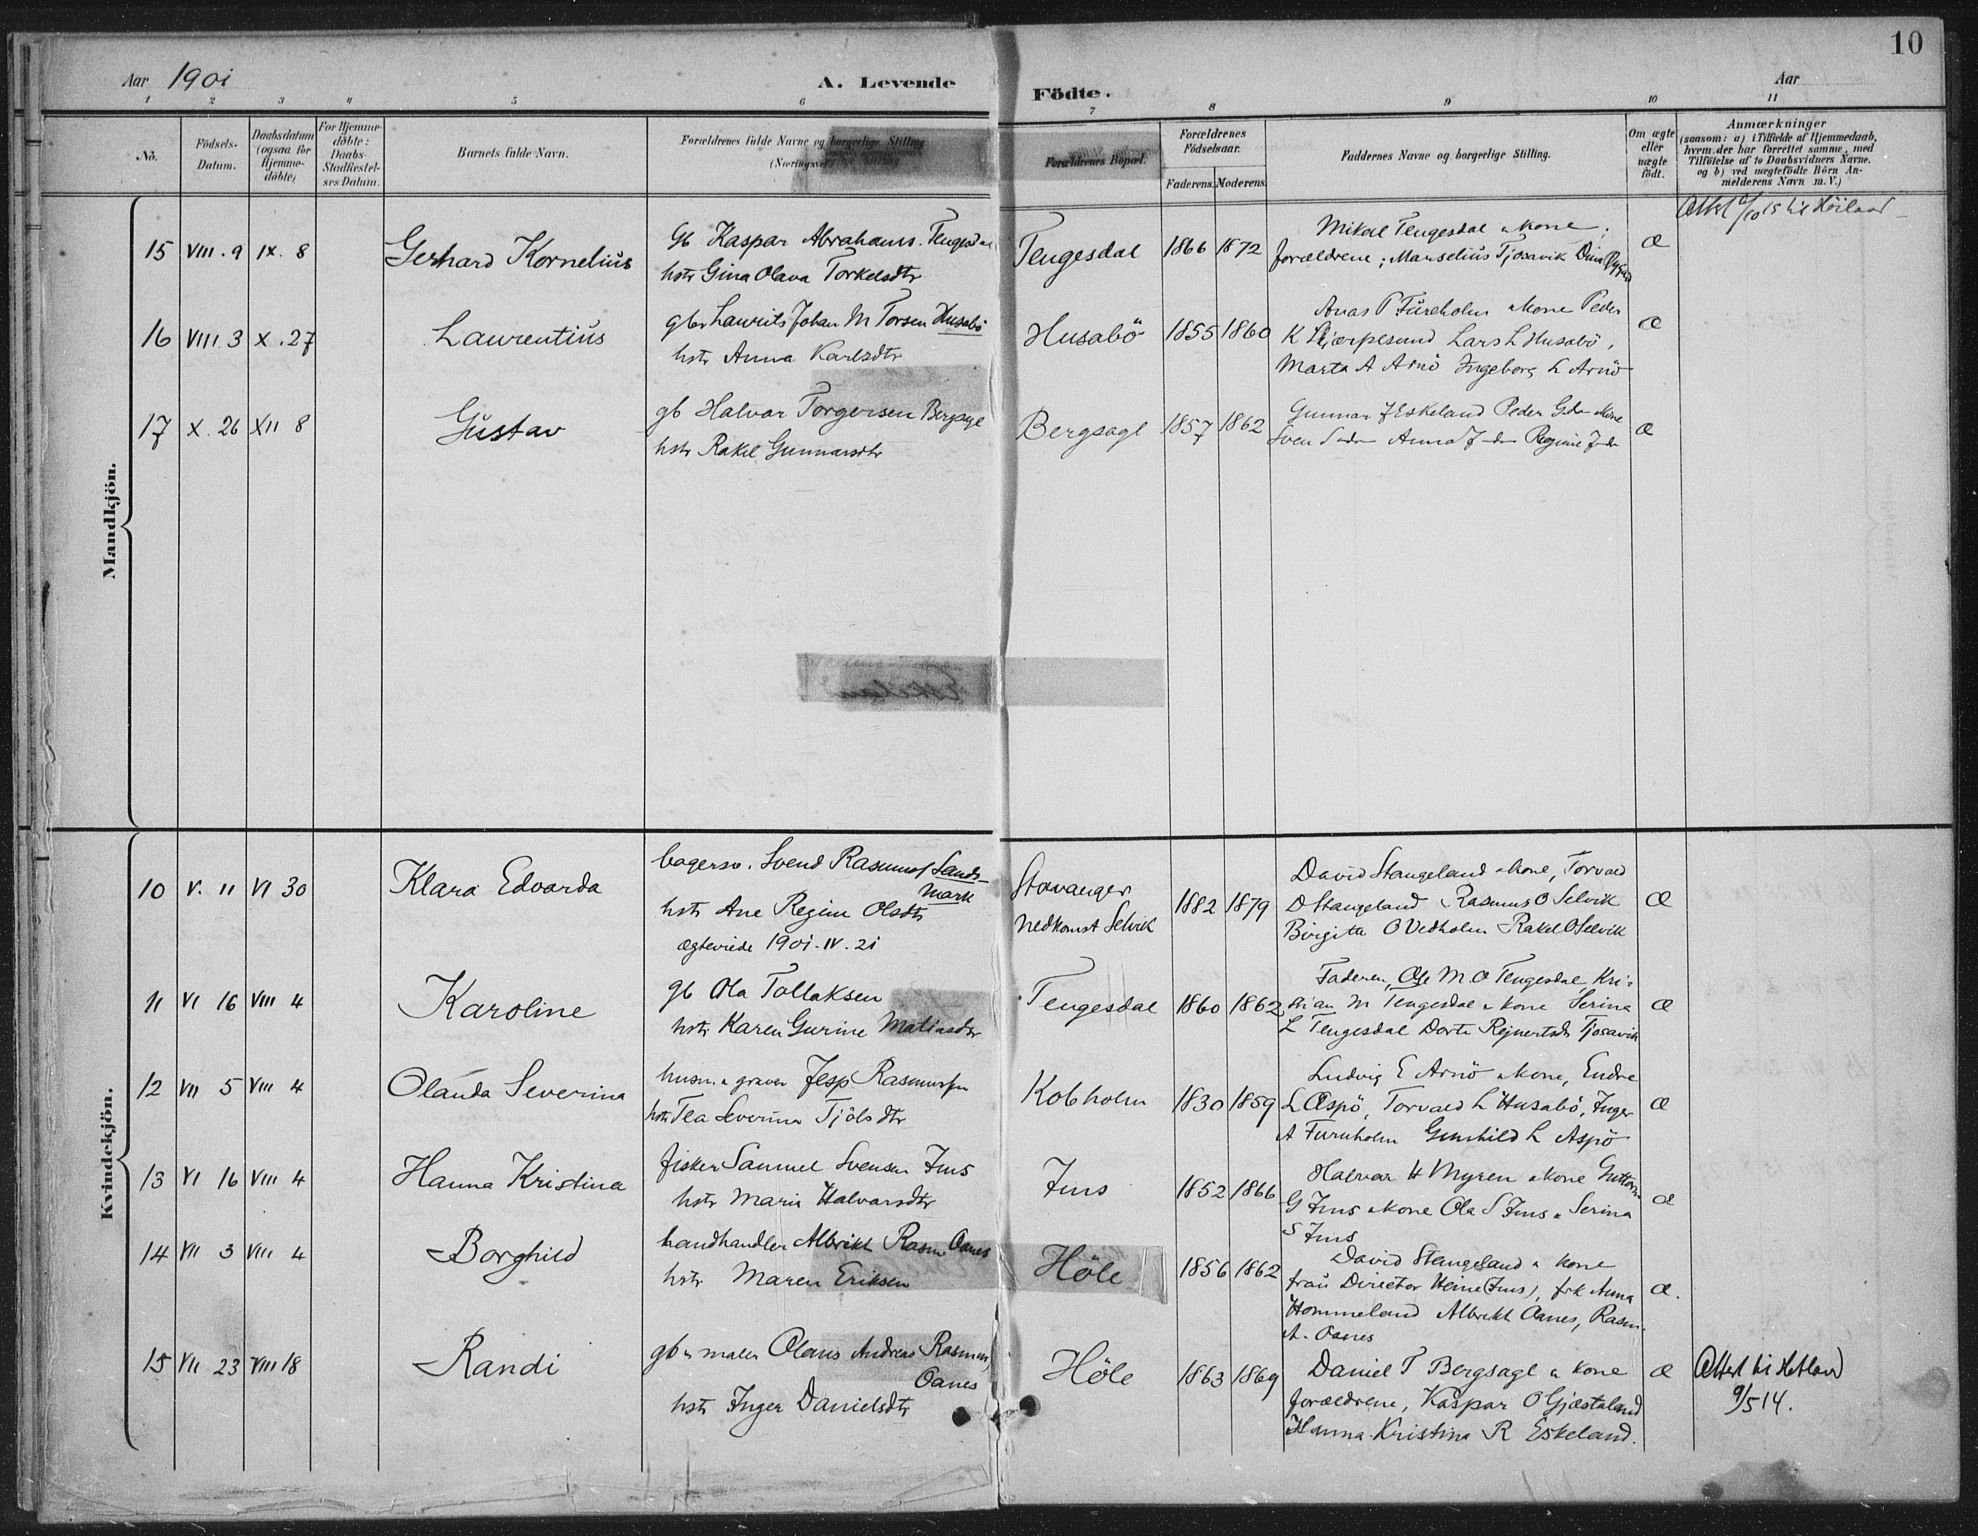 10
Aar 1901
A. Levende Födte.
Aar
1 2 3 4 5 6 7 8 9 10 11
No.
Födsels-Datum.
Daabsdatum (ogsaa for Hjemme-döbte)
For Hjemme-döbte: Daabs-Stadfæstel-ses Datum.
Barnets fulde Navn.
Forældrenes fulde Navne og borgerlige Stilling
Forældrenes Bopæl.
Forældrenes Födselsaar.
Faderens. Moderens.
Faddernes Navne og borgerlige Stilling.
Om ægte eller uægte födt.
Anmærkninger
(saasom: a) i Tilfælde af Hjemmedaab,
hvem der har forrettet samme, med
Tilföielse af to Daabsvidners Navne.
og b) ved uægtefödte Börn An-
melderens Navn m.V.)
Mandkjön.
15 VIII. 9 IX. 8 Gerhard Kornelius
gb Kaspar Abrahams. Tengesdal
hstr Gina Olava Torkelsdtr
Tengesdal 1866 1872
Mikal Tengesdal & kone;
forældrene; Manselius Tjosavik
Æ
16 VIII. 3 X. 27 Laurentius
gbr Laurits Johan M Torsen Husabö
hstr Anna Karlsdtr
Husabö 1855 1860
P Füreholm & kone Peder
K Lars L Husabö,
Marta A Arnö Ingeborg L Arnö
Æ
17 X. 26 XII 8 Gustav
gb Halvor Torgersen Bergsagl
hstr Rakel Gunnarsdtr
Bergsagl 1857 1862
Gunnar J Eskeland Peder
Sven Anna Regine
Æ
Kvindekjön.
10 V. 11 VI 30 Klara Edvarda
bagersv. Svend Rasmus Sands-
mark
hstr Ane Regine Olsdtr
ægteviede 1901-IV-21
Stavanger
nedkomst Selvik
1882 1879
David Stangeland & kone, Torvald
D Stangeland Rasmus O Selvik
Birgitte O Vedholm Rakel O Selvik
Æ
11 VI 16 VIII 4 Karoline
gb Ola Tollaksen
hstr Karen Gurine Matiasdtr
Tengesdal 1860 1862
Faderen, Ole M. O Tengesdal, Kri-
stian M Tengesdal & kone Serina
L Tengesdal Dorte Rejnertsdtr Tjosavik
Æ
12 VII 5 VIII 4 Olauda Severina
husm. & graver Jesp Rasmussen
hstr Tea Severina
Kobholm 1830 1859
Ludvig E Arnö & kone, Endre
L Aspö, Torvald L Husabö, Inger
A Furuholm Gunhild L Aspö
Æ
13 VI 16 VIII 4 Hanna Kristina
fisker Samuel Svensen Ims
hstr Maria Halvarsdtr
Ims 1852 1866
Halvar H Myren & kone Guttorm
G Ims & kone Ola S Ims & Serina
S Ims
Æ
14 VII 3 VIII 4 Borghild
handhandler Albrikt Rasm Oanes
hstr Maren Eriksen
Höle 1856 1862
David Stangeland & kone
frau Director Heine (Ims), frk Anna
Hommeland Albrikt Oanes, Rasm.
A. Oanes
Æ.
15 VII 23 VIII 18 Randi
gb & maler Olaus Andreas Rasmus
Oanes
hstr Inger Danielsdtr
Höle 1863 1869
Daniel T Bergsagl & kone
forældrene, Kaspar O Gjæstaland
Hanna Kristina R Eskeland.
Æ
Attest til Hetland
9/5 14.